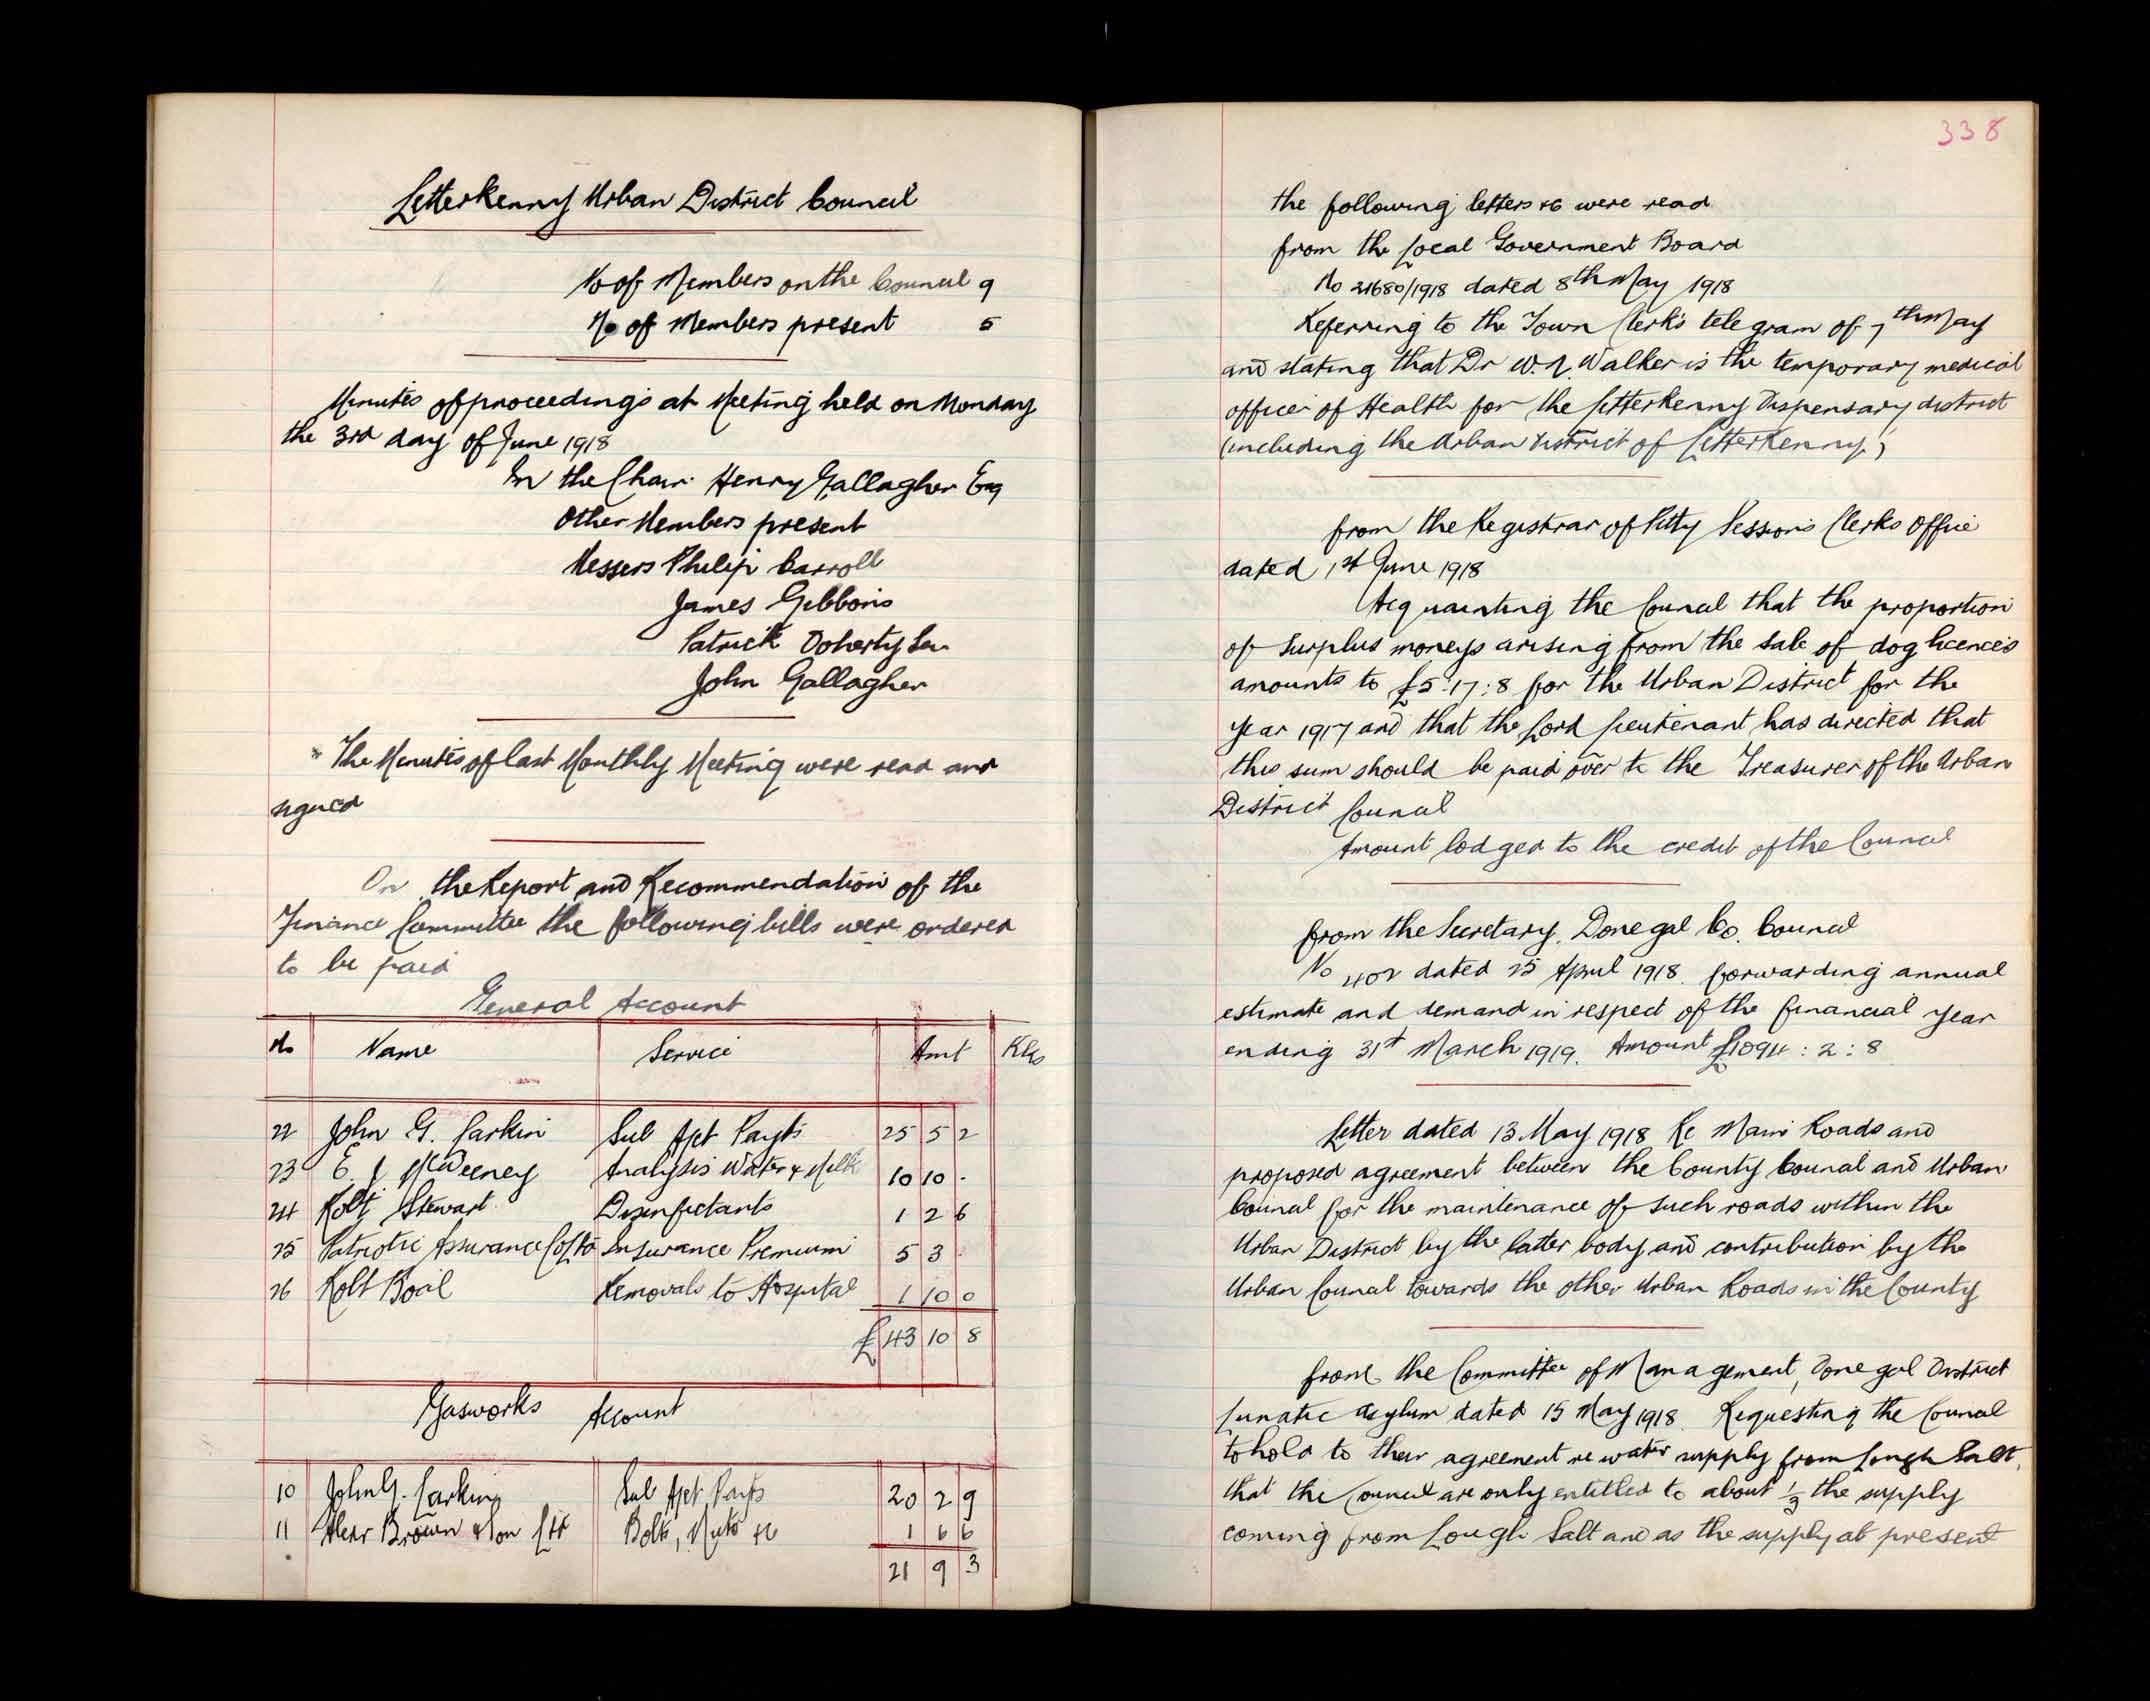 Letterkenny Urban District Council
No of Members on the Council 9
No of Members present 5
Minutes of proceedings at Meeting held on Monday
the 3rd day of June 1918
In the Chair Henry Gallagher Esq
Other Members present
Messers Philip Carroll
James Gibbons
Patrick Doherty Sen
John Gallagher
The Minutes of last Monthly Meeting were read and
signed
On the Report and Recommendation of the
Finance Committee the following bills were ordered
to be paid
General Account
No Name Service Amt Rks
22 John G. Larkin Sub Apt Payts 25 5 2
23 E. J McWeeney Analysis Water & Milk 10 10 .
24 Robt Stewart Disinfectants 1 2 6
25 Patriotic Assurance Co Ltd Insurance Premium 5 3
26 Robt Boal Removals to Hospital 1 10 0
£ 43 10 8
Gasworks Account
10 John G. Larkin Sub Apt Payts 20 2 9
11 Alexr Brown & Son Ltd Bolts, Nuts &c 1 6 6
21 9 3
338
the following letters &c were read
from the Local Government Board
No 21680/1918 dated 8th May 1918
Referring to the Town Clerk's telegram of 7th May
and stating that Dr W. Walker is the temporary medical
officer of Health for the Letterkenny Dispensary district
(including the Urban District of Letterkenny)
from the Registrar of Petty Sessions Clerks Office
dated 1st June 1918
Acquainting the Council that the proportion
of surplus moneys arising from the sale of dog licences
amounts to £5:17:8 for the Urban District for the
year 1917 and that the Lord Lieutenant has directed that
this sum should be paid over to the Treasurer of the Urban
District Council
Amount lodged to the credit of the Council
from the Secretary, Donegal Co. Council
No 402 dated 25 April 1918 forwarding annual
estimate and demand in respect of the financial year
ending 31st March 1919. Amount £1094:2:8
Letter dated 13 May 1918 Re Main Roads and
proposed agreement between the County Council and Urban
Council for the maintenance of such roads within the
Urban District by the latter body and contribution by the
Urban Council towards the other Urban Roads in the County
from the Committee of Management, Donegal District
Lunatic Asylum dated 15 May 1918 Requesting the Council
to hold to their agreement re water supply from Lough Salt,
that the Council are only entitled to about 1/3 the supply
coming from Lough Salt and as the supply at present